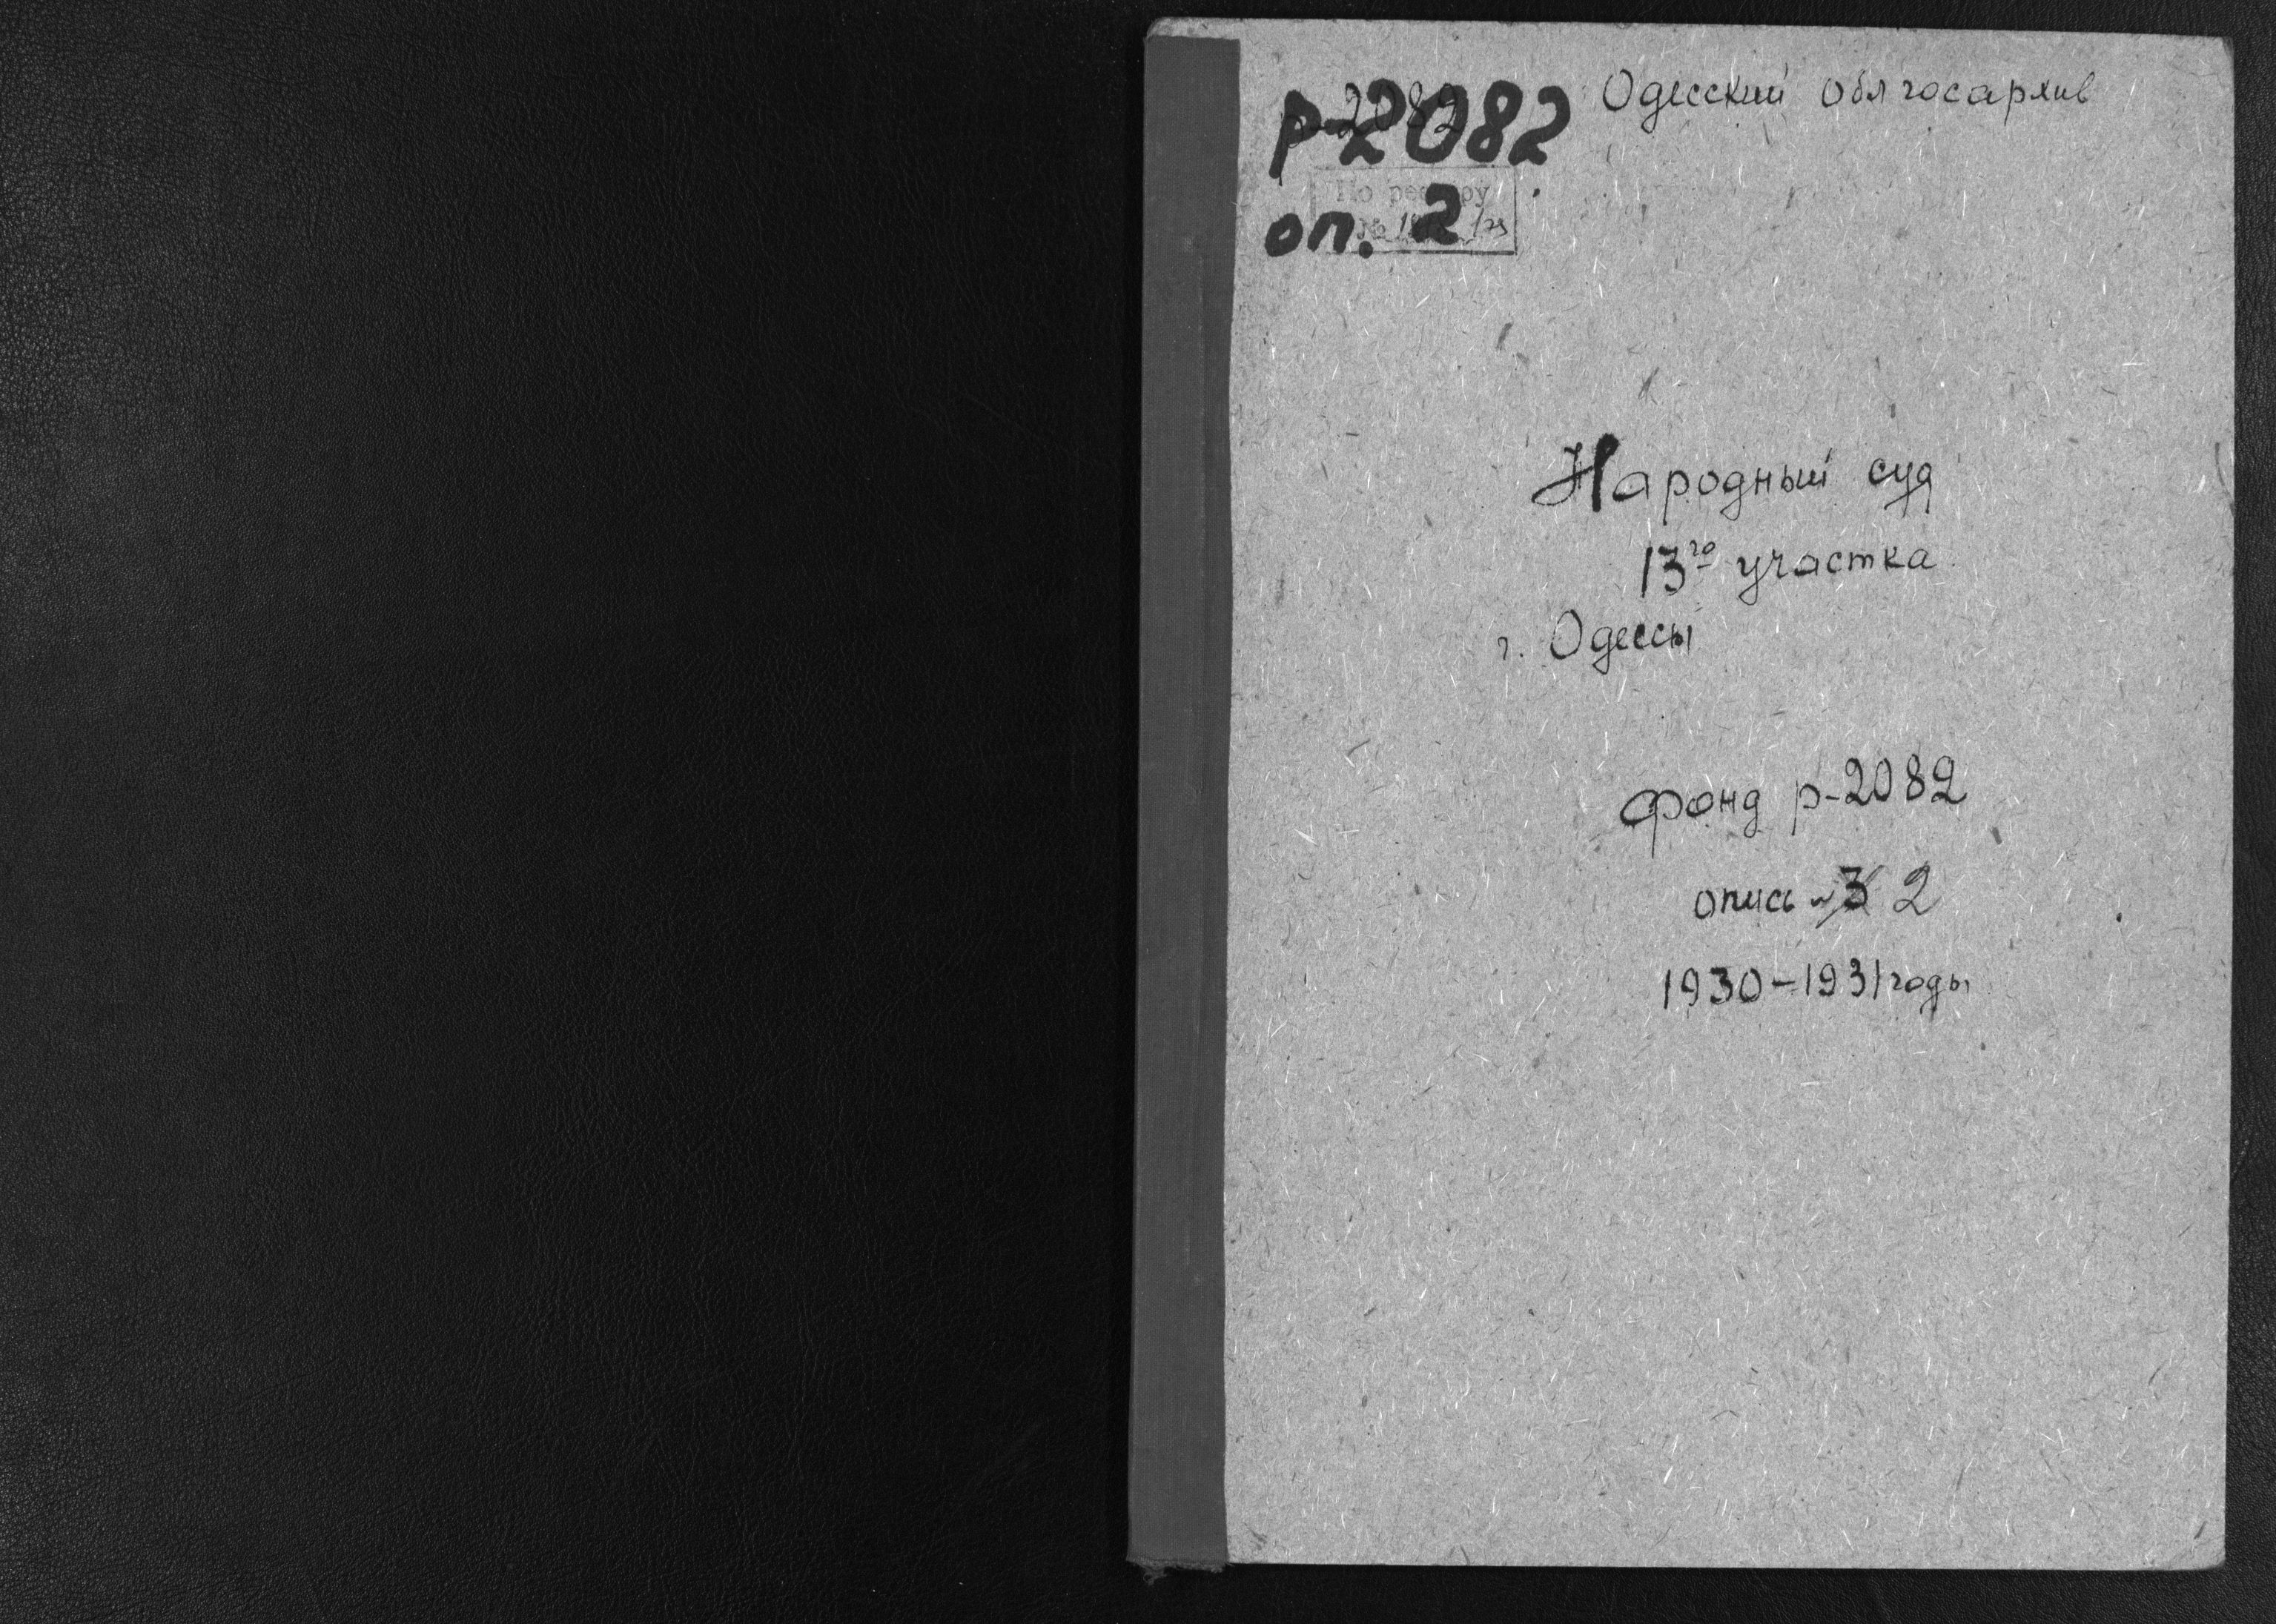 Одесский облгосархив
р-2082
р-2082
По реестру
оп. 2
№
Народный суд
13го участка
г. Одессы
фонд р-2082
опись №3 2
1930-1931 годы